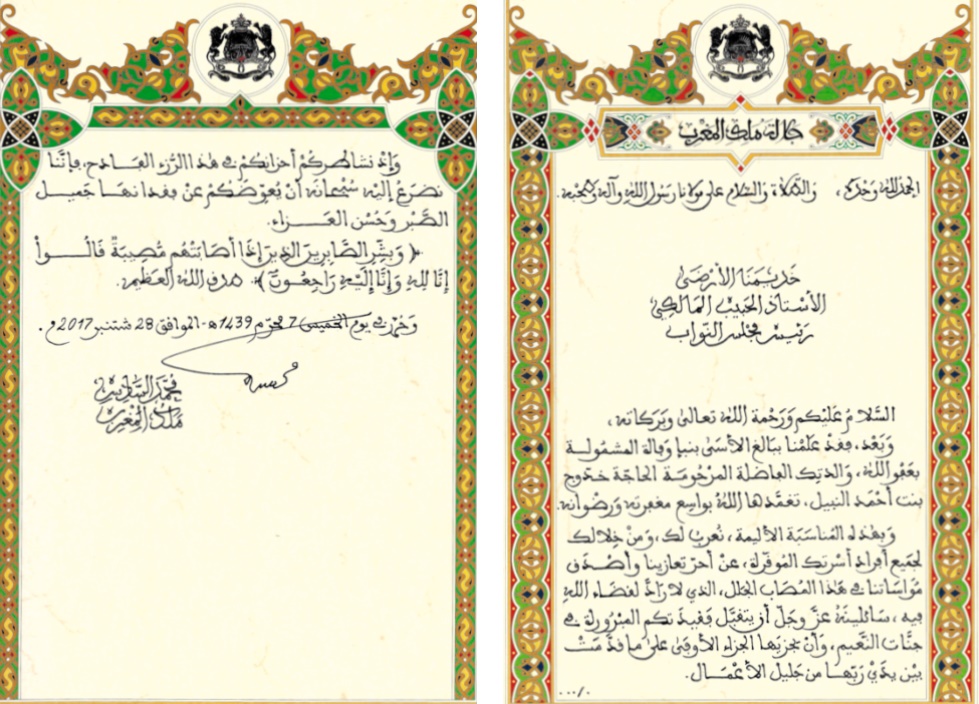 جلالة ملك المغرب
الحمد لله وحده، والصلاة والسلام على مولانا رسول الله وآله وصحبه.
خديمنا الأرضى
الأستاذ الحبيب المالكي
رئيس مجلس النواب
السَّلامُ عَلَيْكم وَرَحْمة الله تعالى وبَرَكاته،
وَبَعْد، فقدْ عَلمْنا ببالغ الأسَى بنبإ وفاة المشمُولة
بعَفو الله، والدتِك الفاضلة المرْحُومَة الحاجّة خدّوج
بنت أحْمَد النبيل، تغمَّدها اللهُ بواسِع مغفرته وَرضْوانه.
وَبهذه المُناسَبَة الأليمة، نُعربُ لك، وَمنْ خِلالك
لجَميع أفراد أسْرتك المُوقّرة، عنْ أحَرّ تعازينا وأصْدق
مُواسَاتنا في هَذا المصَاب الجَلل، الذي لا رَادَّ لقضَاء الله
فيه، سَائلينهُ عزَّ وَجَلّ أن يتقبَّل فقيدَتكم المبْرُورة في
جنَّات النَّعيم، وَأنْ يجزيَها الجزاءَ الأوفى على ما قدَّمَتْ
بيْن يدَيْ رَبّها من جَليل الأعْمَال.
.../.
وَإذ نشاطركُمْ أحزانكُمْ في هَذا الرّزء الفَادح، فإنَّنا
نضرَعُ إليْه سُبْحانهُ أنْ يُعوّضكُمْ عنْ فقدانها جَميل
الصَّبْر وَحُسْن العَزاء.
﴿ وَبَشّر الصَّابرينَ الذينَ إذَا أصَابَتهُم مُّصِيبَةٌ قَالُواْ
إنَّا لِلهِ وَإنَّا إلَيْهِ رَاجعُونَ﴾ صدق الله العَظيم.
وَحُرّر في يوم الخميس 7 محرّم 1439 هـ - الموَافق 28 شتنبر 2017 م.
محمد السادس
ملك المغرب